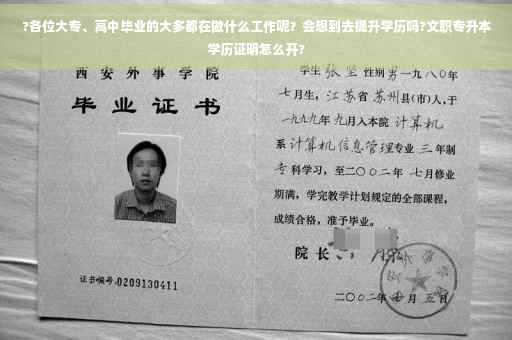 ?各位大专、高中毕业的大多都在做什么工作呢？会想到去提升学历吗?文职专升本
学历证明怎么开?
西安外事学院
毕业证书
证书编号:0209130411
学生张坚性别男一九八〇年
七月生，江苏省苏州县(市)人,于
一九九九年九月入本院计算机
系计算机信息管理专业三年制
专科学习，至二〇〇二年七月修业
期满，学完教学计划规定的全部课程，
成绩合格，准予毕业。
院长
二〇〇二年 月五日